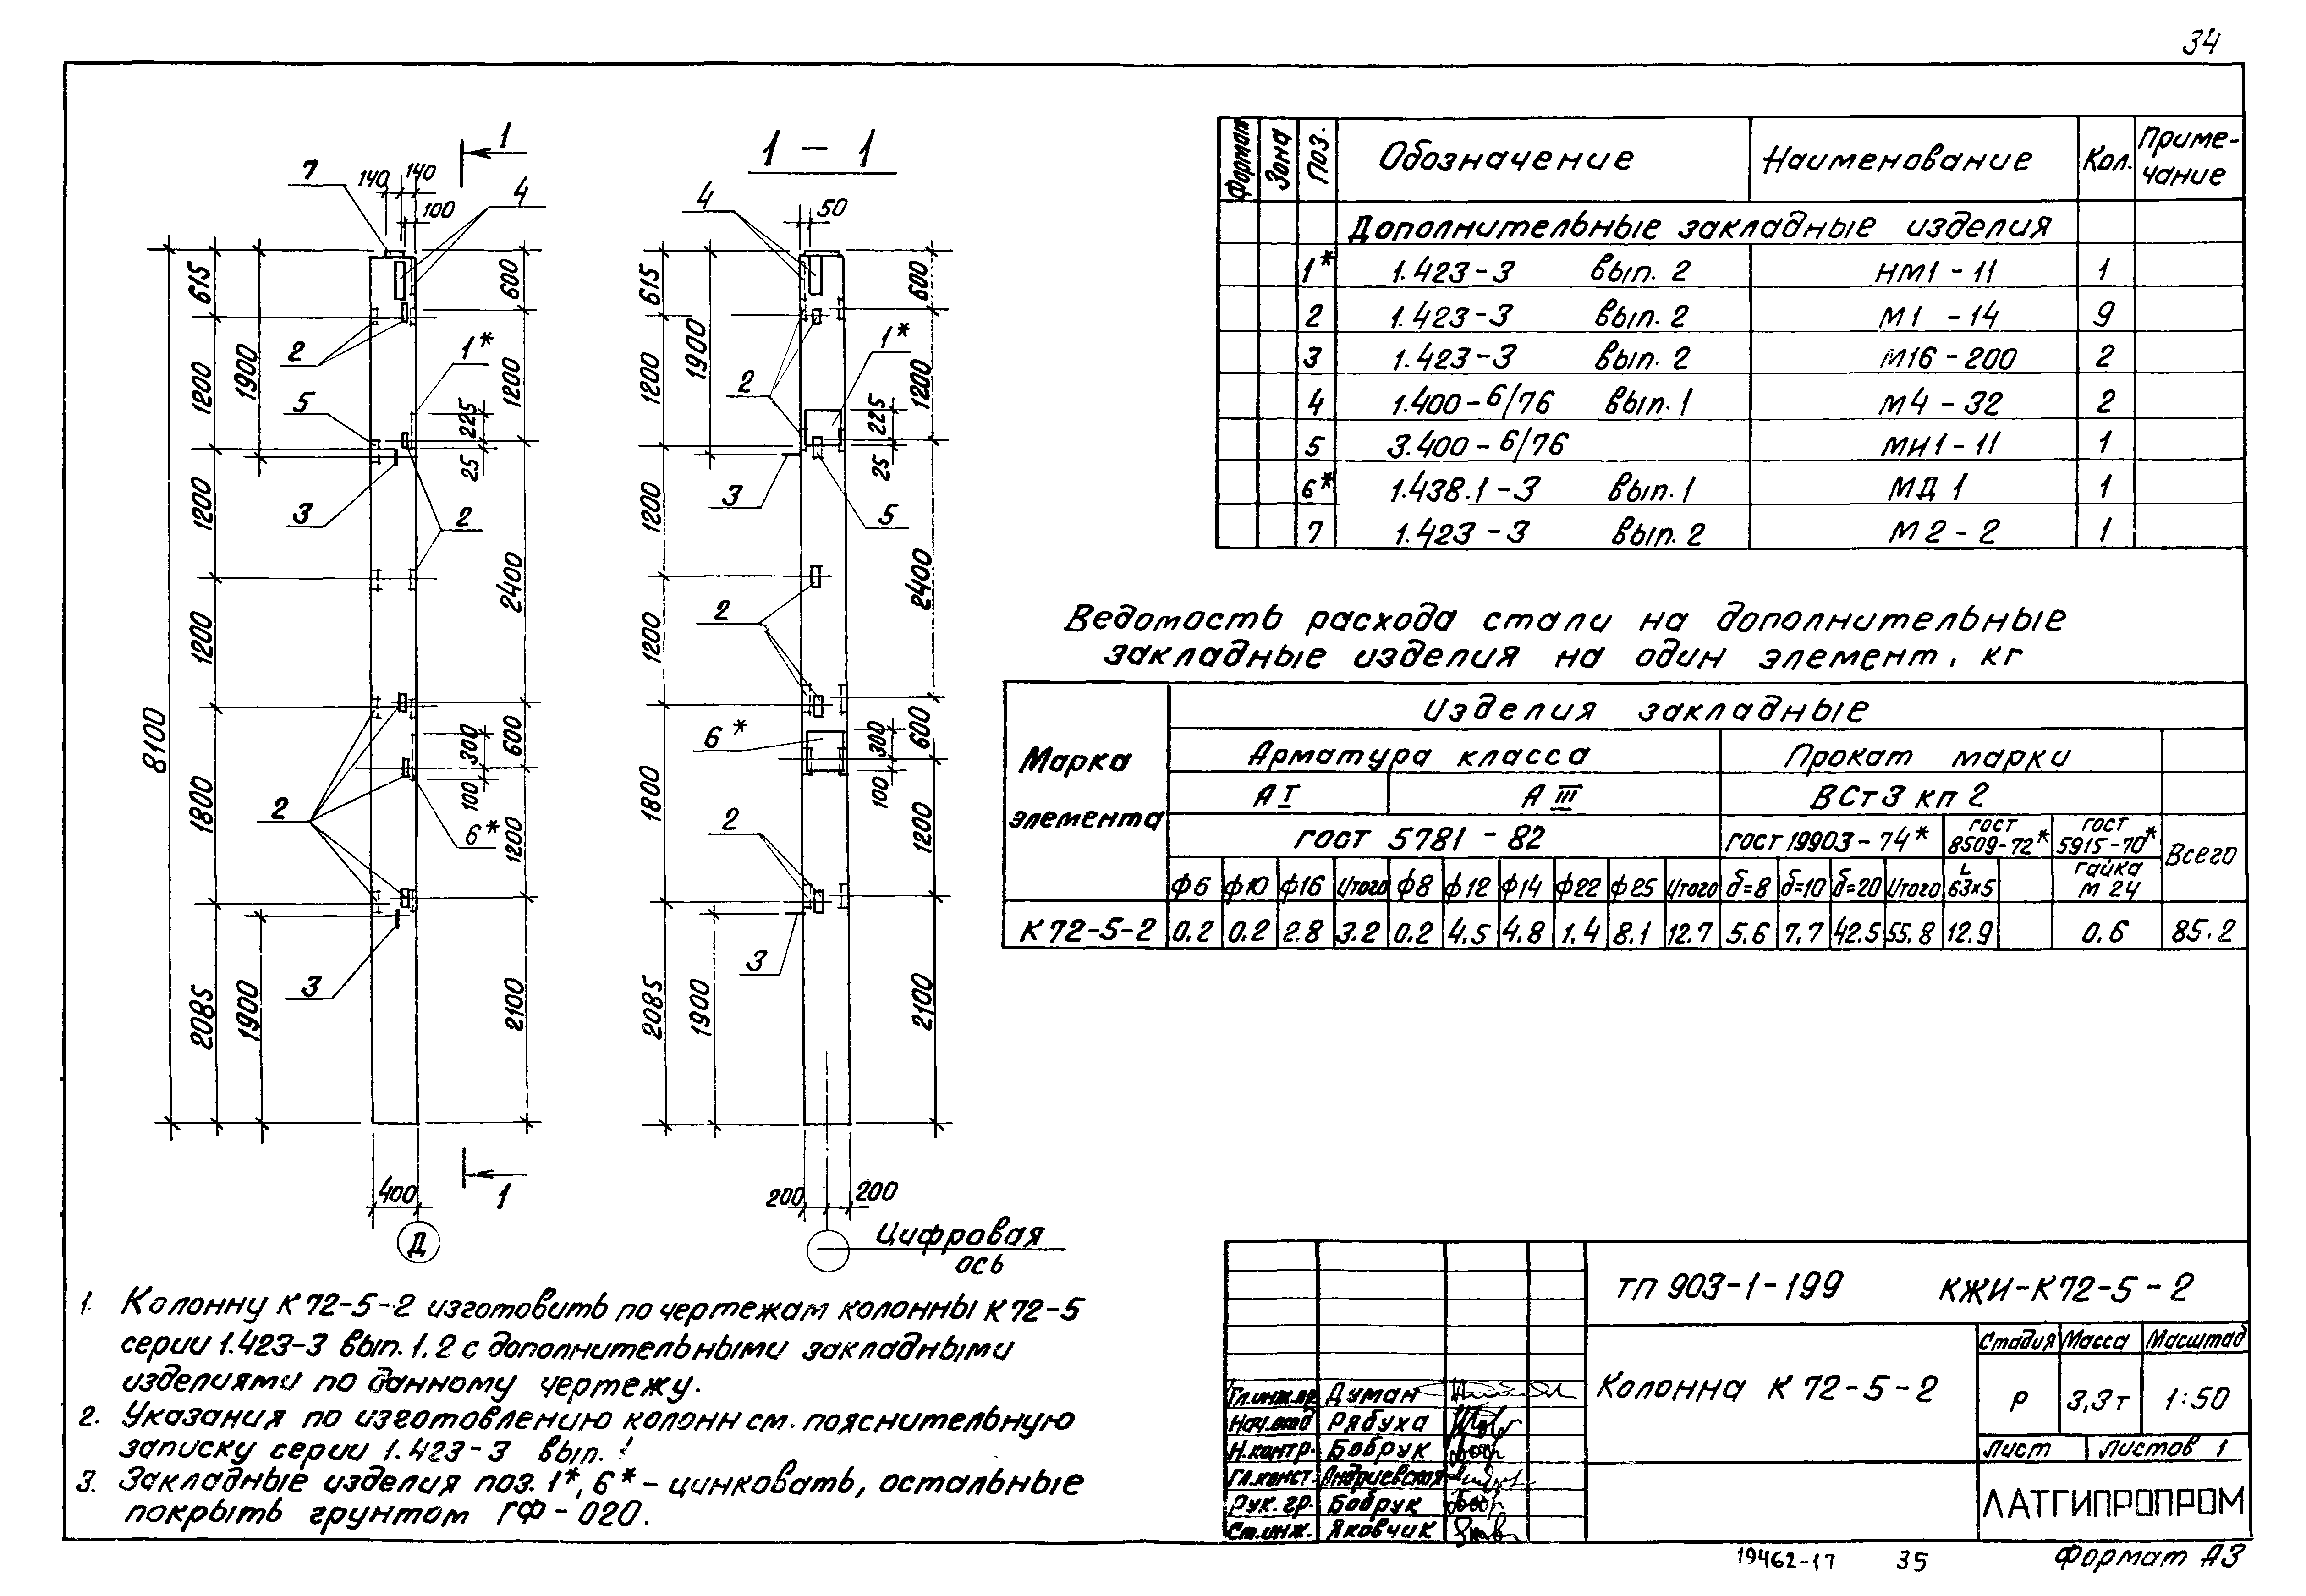 34
1
1 - 1
7
140
140
4
100
4
50
615
600
615
600
1900
1200
2
1*
1200
5
225
25
3
2
1200
2400
1200
8100
2
300
600
100
6*
1200
1800
3
2085
1900
2100
1
400
Д
1900
1200
1*
2
1200
225
25
3
5
1200
2400
2
1200
6*
300
600
100
1800
2
1200
3
2085
1900
2100
200
200
Цифровая
ось
Формат
Зона
Поз.
Обозначение
Наименование
Кол.
Приме-
чание
Дополнительные закладные изделия
1* 1.423-3 вып. 2 НМ1-11 1
2 1.423-3 вып. 2 М1 -14 9
3 1.423-3 вып. 2 М16-200 2
4 1.400-6/76 вып. 1 М4-32 2
5 3.400-6/76 МИ1-11 1
6* 1.438.1-3 вып. 1 МД 1 1
7 1.423-3 вып. 2 М2-2 1
Ведомость расхода стали на дополнительные
закладные изделия на один элемент, кг
Марка
элемента
Изделия закладные
Арматура класса
Прокат марки
А I
А III
ВСт3 кп 2
Всего
ГОСТ 5781 - 82
ГОСТ 19903-74*
ГОСТ
8509-72*
ГОСТ
5915-70*
ф6 ф10 ф16 Итого ф8 ф12 ф14 ф22 ф25 Итого δ=8 δ=10 δ=20 Итого L 63×5 Гайка М 24
К 72-5-2 0.2 0.2 2.8 3.2 0.2 4.5 4.8 1.4 8.1 12.7 5.6 7.7 42.5 55.8 12.9 0.6 85.2
1. Колонну К 72-5-2 изготовить по чертежам колонны К 72-5
серии 1.423-3 вып. 1, 2 с дополнительными закладными
изделиями по данному чертежу.
2. Указания по изготовлению колонн см. пояснительную
записку серии 1.423-3 вып. 1
3. Закладные изделия поз. 1*, 6* - цинковать, остальные
покрыть грунтом ГФ-020.
ТП 903-1-199 КЖИ-К72-5-2
Колонна К 72-5-2
Стадия Масса Масштаб
Р 3,3т 1:50
Лист Листов 1
ЛАТГИПРОПРОМ
Гл.инж.пр Думан
Нач.отд Рябуха
Н.контр. Бобрук
Гл.конст. Андриевская
Рук. гр. Бобрук
Ст.инж. Яковчик
19462-17 35 Формат А3